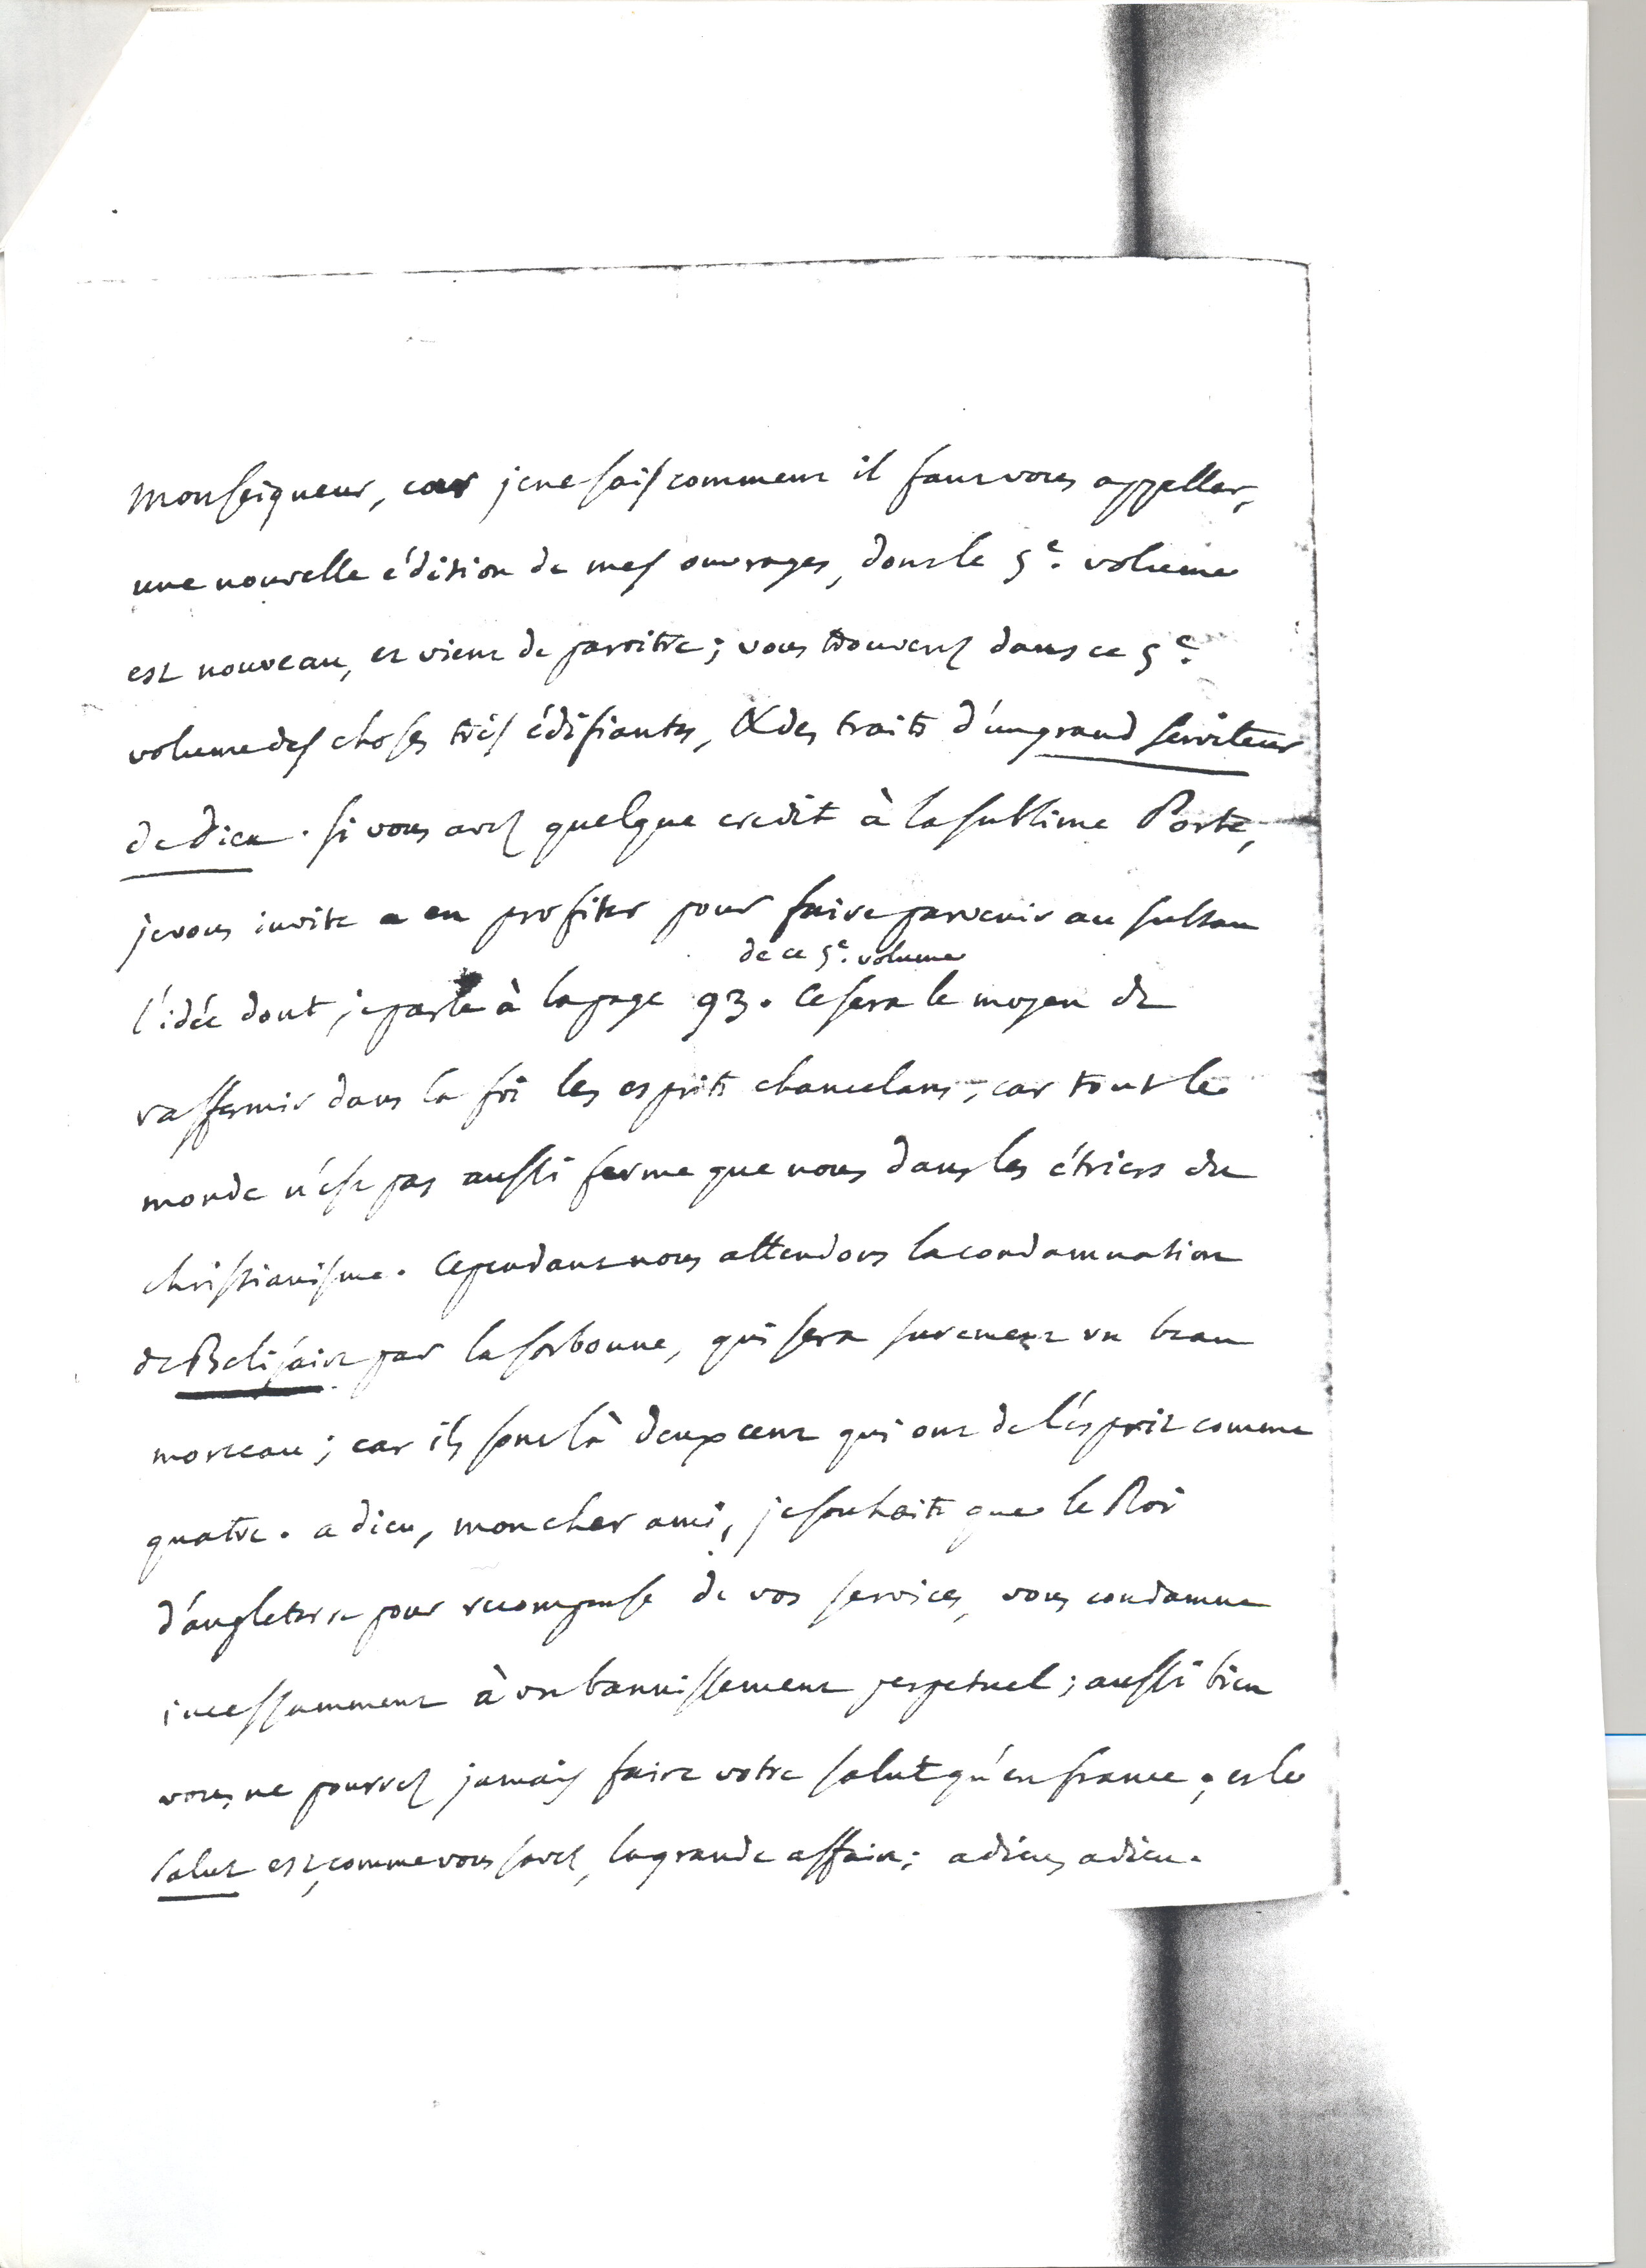 Monseigneur, car je ne sais comment il faut vous appeller,
une nouvelle édition de mes ouvrages, dont le 5e. volume
est nouveau, et vient de paroitre; vous trouverez dans ce 5e.
volume des choses très édifiantes, & des traits d'un grand serviteur
de dieu. si vous avez quelque credit à la sublime Porte,
je vous invite a en profiter pour faire parvenir au sultan
de ce 5e. volume
l'idée dont je parle à la page 93. Ce sera le moyen de
raffermir dans la foi les esprits chancelans, car tout le
monde n'est pas aussi ferme que nous dans les étriers du
christianisme. Cependant nous attendons la condamnation
de Belisaire par la sorbonne, qui sera surement un beau
morceau; car ils sont là deux cent qui ont de l'esprit comme
quatre. adieu, mon cher ami, je souhaite que le Roi
d'angleterre pour recompense de vos services, vous condamne
incessamment à un bannissement perpetuel; aussi bien
vous ne pourrez jamais faire votre salut qu'en france; et le
salut est, comme vous savez, la grande affaire; adieu, adieu.